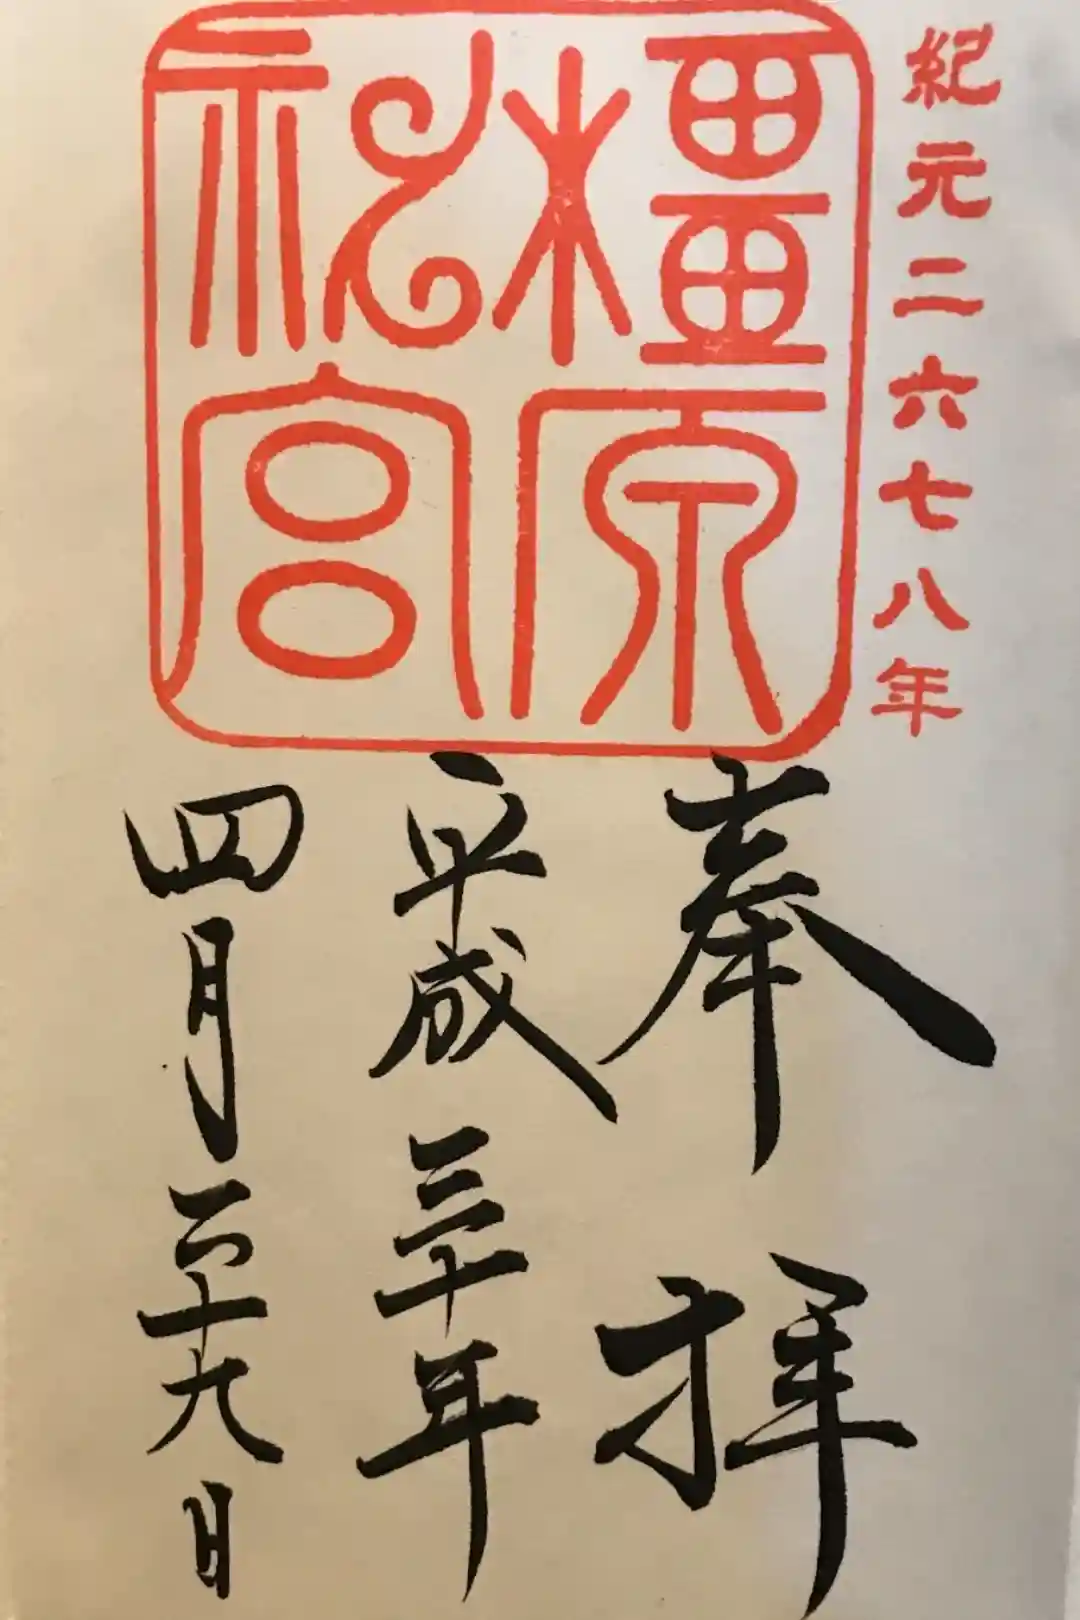 紀元二六七八年
橿原
神宮
奉拝
平成三十年
四月二十九日